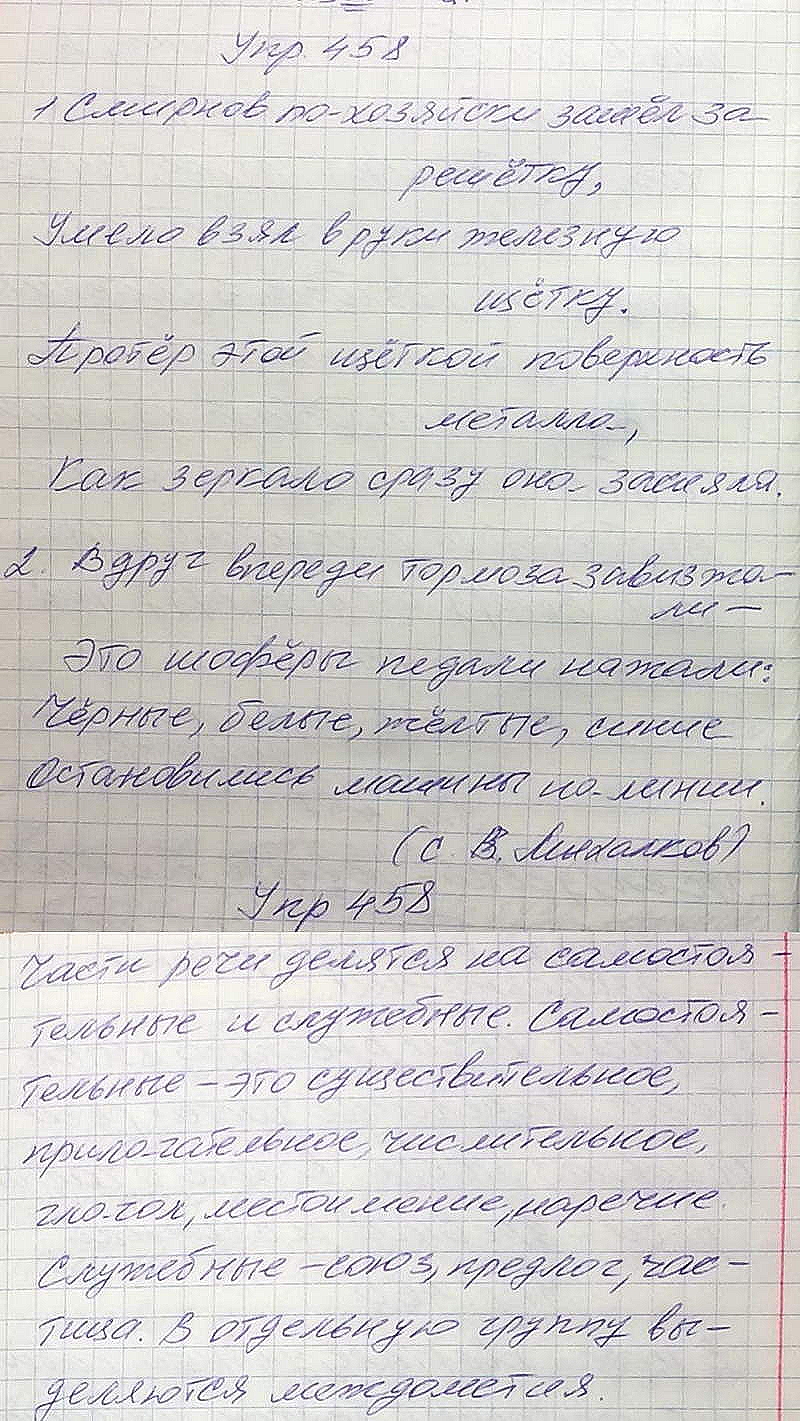 Упр. 458
1 Смирнов по-хозяйски зашёл за
решётку,
Умело взял в руки железную
щётку.
Протёр этой щёткой поверхность
металла,
Как зеркало сразу она засияла.
2. Вдруг впереди тормоза завизжа-
ли –
Это шофёры педали нажали:
Чёрные, белые, жёлтые, синие
Остановились машины на линии.
(С. В. Михалков)
Упр 458
Части речи делятся на самостоя-
тельные и служебные. Самостоя-
тельные – это существительное,
прилагательное, числительное,
глагол, местоимение, наречие.
Служебные – союз, предлог, час-
тица. В отдельную группу вы-
деляются междометия.